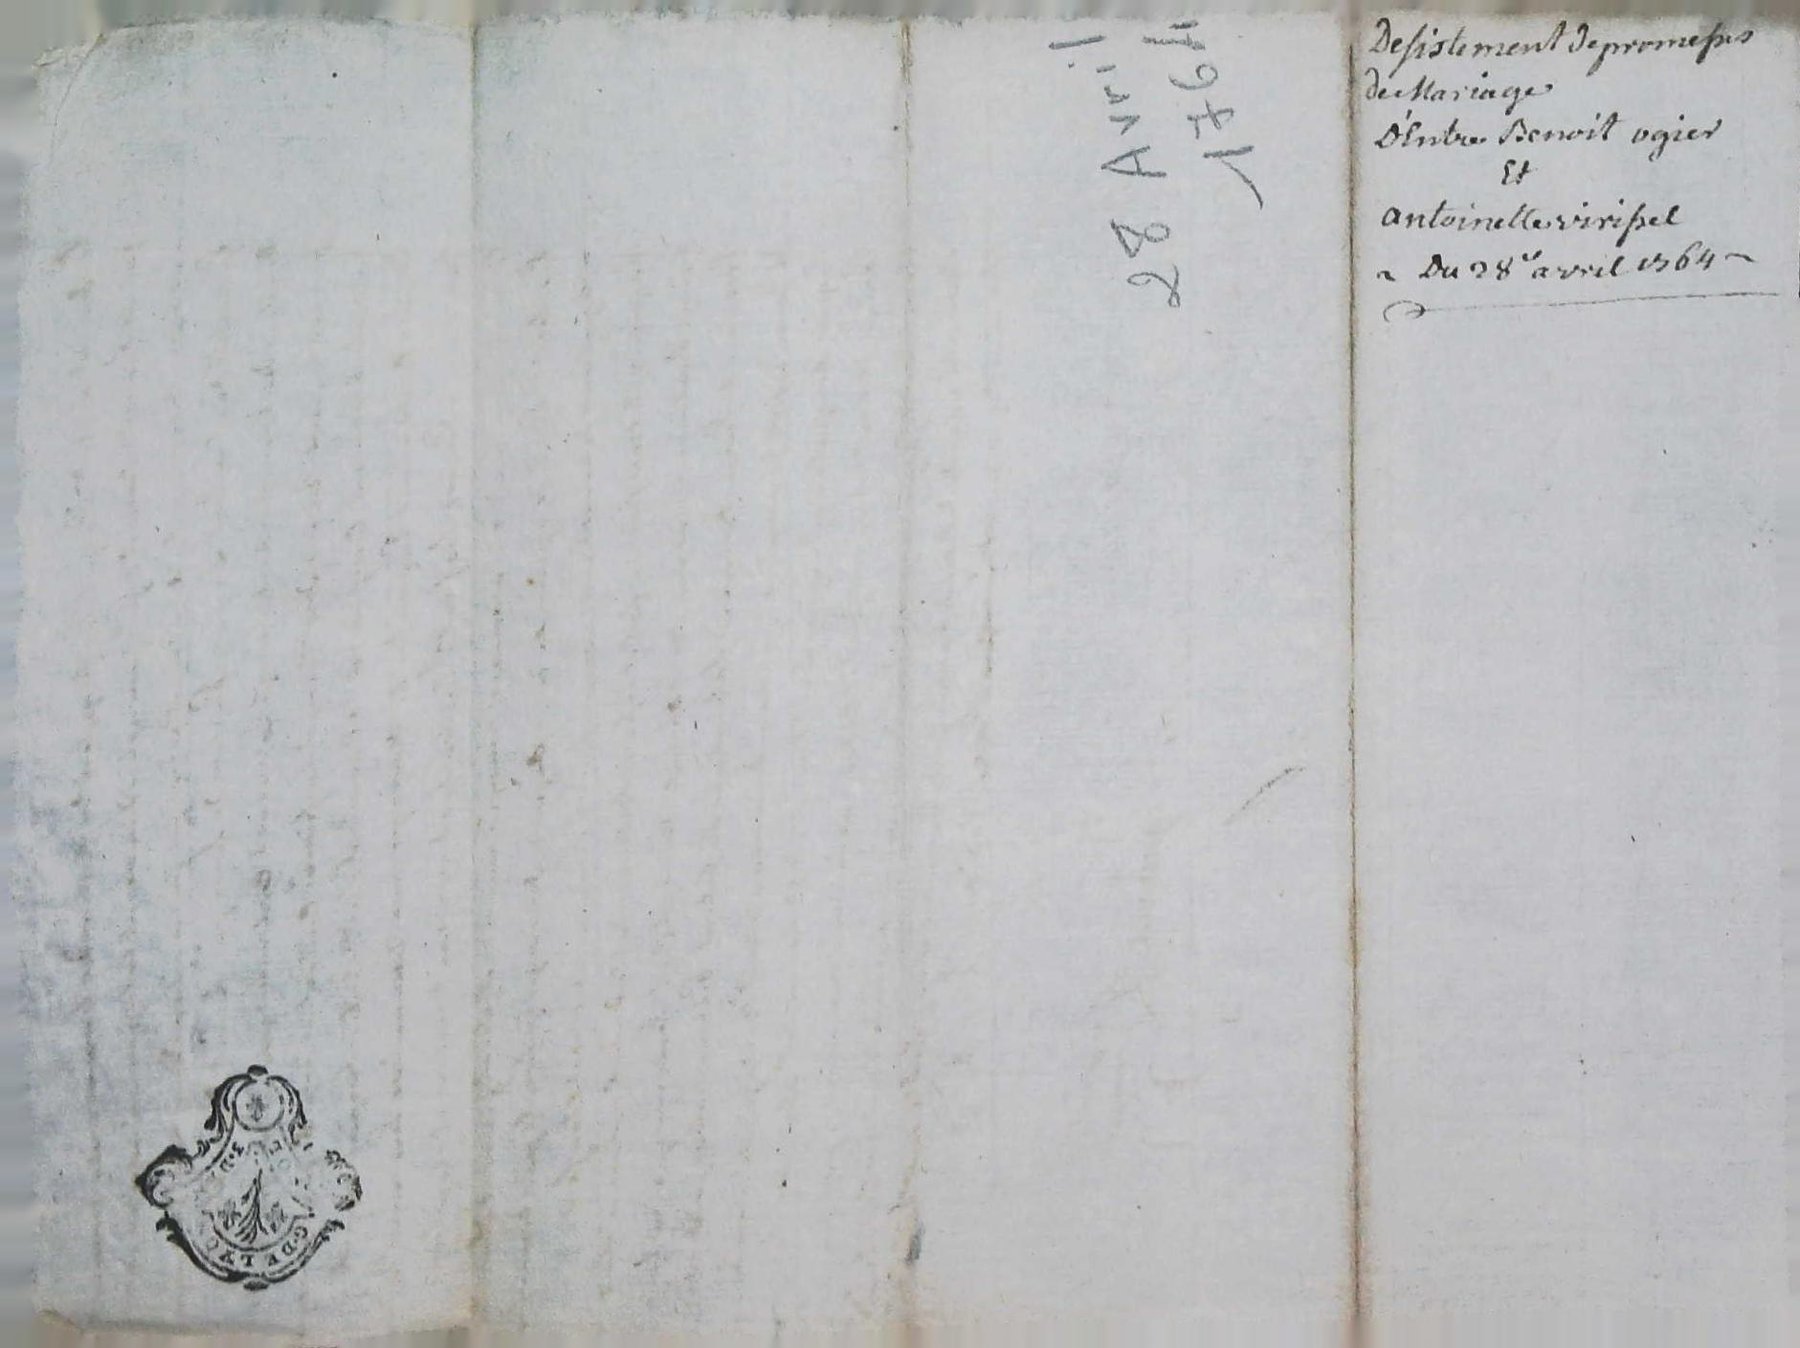 Desistement de promesses
de Mariage
D'Entre Benoit ogier
Et
antoinette virissel
~ Du 28e avril 1764 ~
28 Avril
1764
G. DE LYO